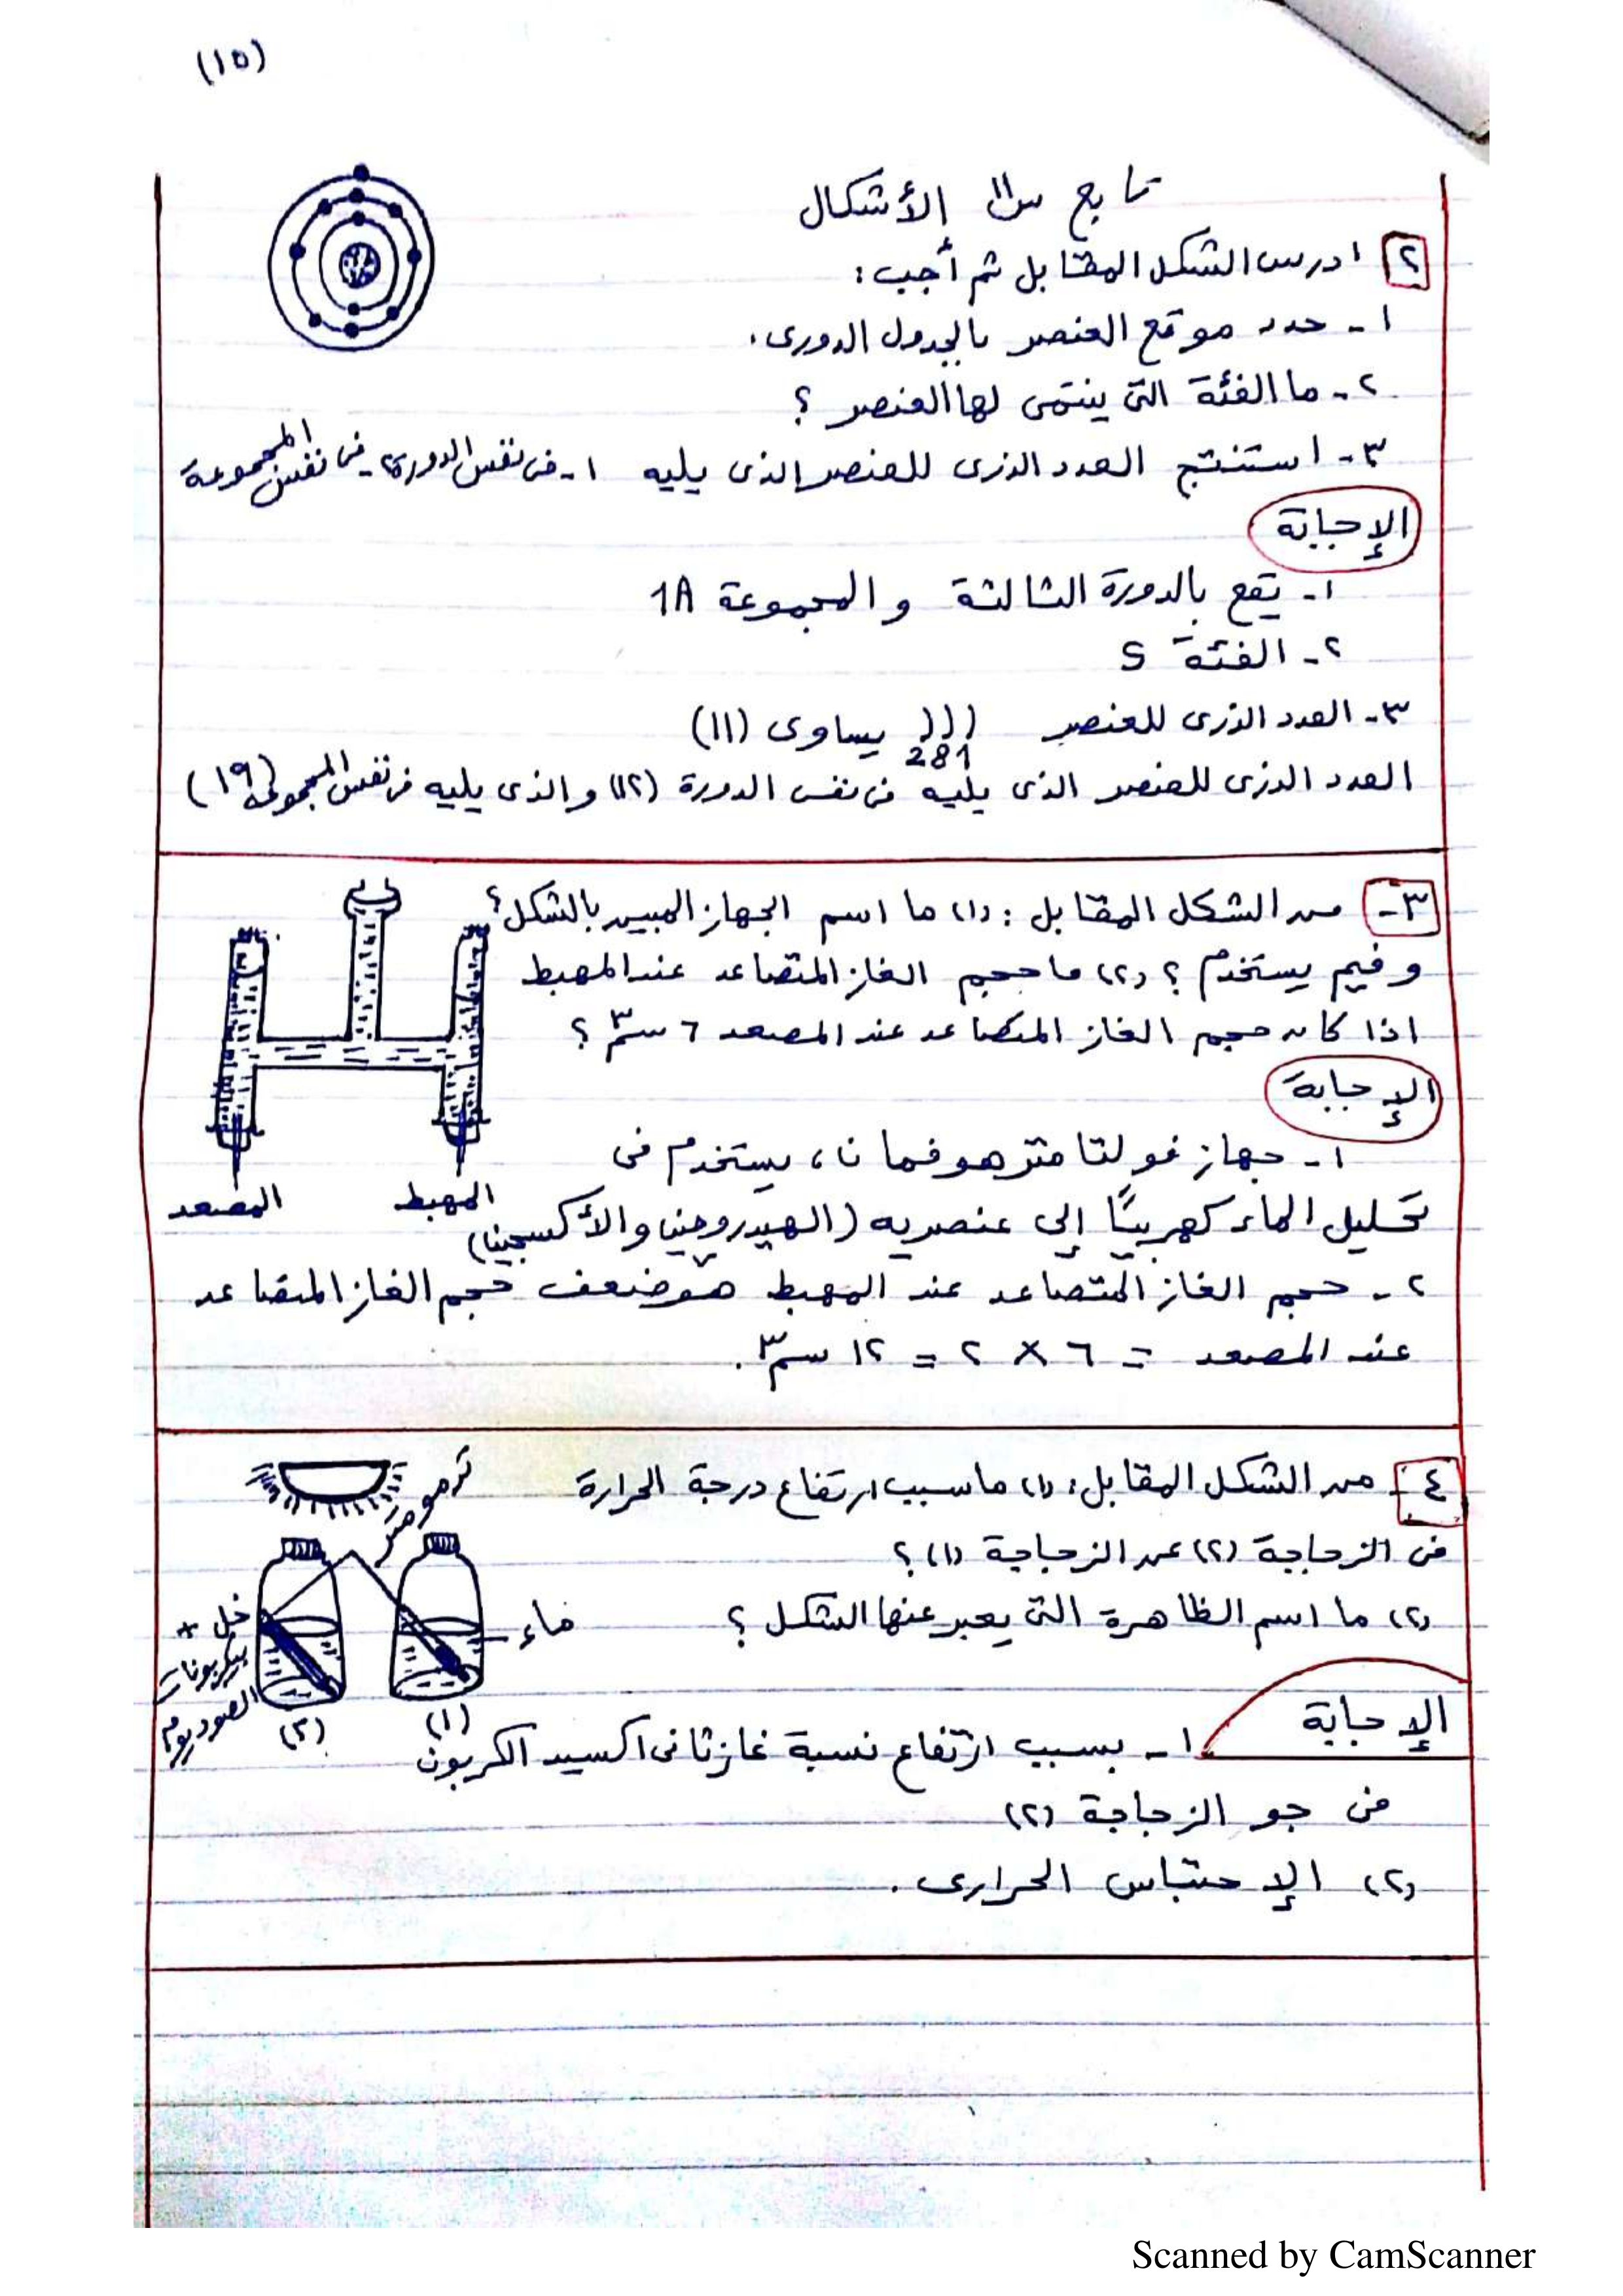 (١٥)
تابع س١١ الأشكال
٢ ادرس الشكل المقابل ثم أجب:
١ - حدد موقع العنصر بالجدول الدورى.
٢ - ما الفئة التى ينتمى لها العنصر ؟
٣ - استنتج العدد الذرى للعنصر الذى يليه ١ - فى نفس الدورة ٢ - فى نفس المجموعة
الإجابة
١ - يقع بالدورة الثالثة و المجموعة 1A
٢ - الفئة S
٣ - العدد الذرى للعنصر ((( يساوى (١١)
281
العدد الذرى للعنصر الذى يليه فى نفس الدورة (١٢) والذى يليه فى نفس المجموعة (١٩)
٣ - من الشكل المقابل : (١) ما اسم الجهاز المبين بالشكل ؟
و فيم يستخدم ؟ (٢) ما حجم الغاز المتصاعد عند المهبط
اذا كان حجم الغاز المتصاعد عند المصعد ٦ سم٣ ؟
الإجابة
١ - جهاز فولتامتر هوفمان ، يستخدم فى
المصعد المهبط
تحليل الماء كهربيًا إلى عنصريه (الهيدروجين والأكسجين)
٢ - حجم الغاز المتصاعد عند المهبط هو ضعف حجم الغاز المتصاعد
عند المصعد = ٦ × ٢ = ١٢ سم٣ .
٤ - من الشكل المقابل: (١) ما سبب ارتفاع درجة الحرارة
ترمومتر
فى الزجاجة (٢) عن الزجاجة (١) ؟
(٢) ما اسم الظاهرة التى يعبر عنها الشكل ؟
ماء
خل +
بيكربونات
الصوديوم
(١)
(٢)
الإجابة
١ - بسبب ارتفاع نسبة غاز ثانى اكسيد الكربون
فى جو الزجاجة (٢)
(٢) الإحتباس الحرارى .
Scanned by CamScanner